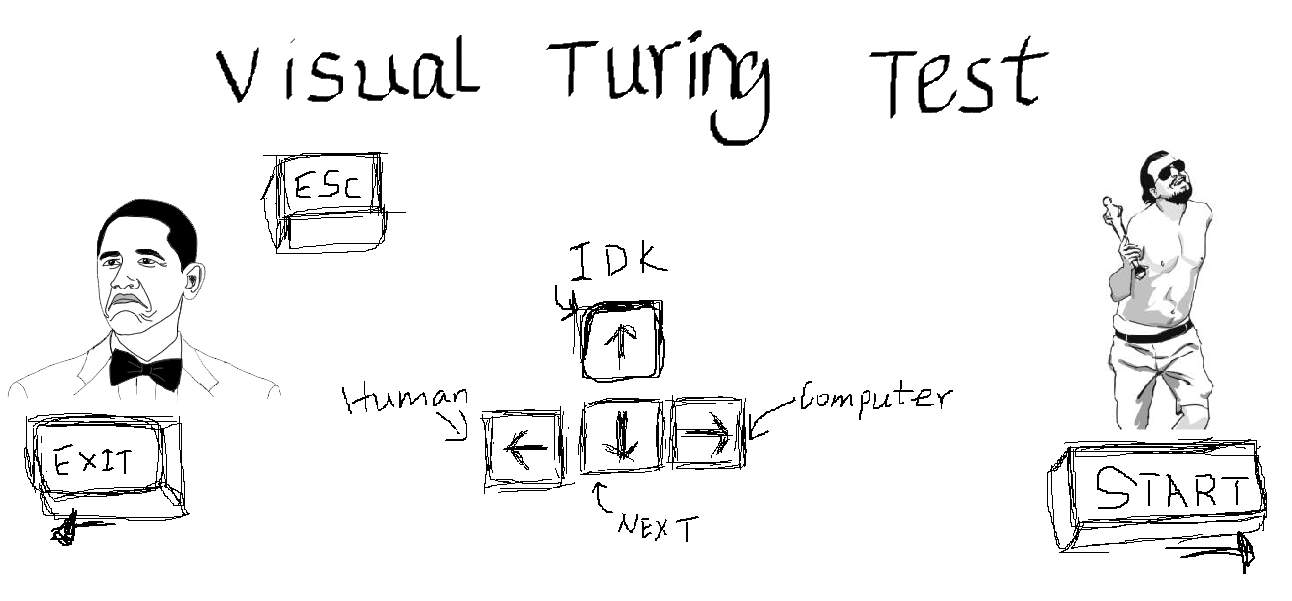 Visual Turing Test
ESC
IDK
Human
Computer
EXIT
START
NEXT